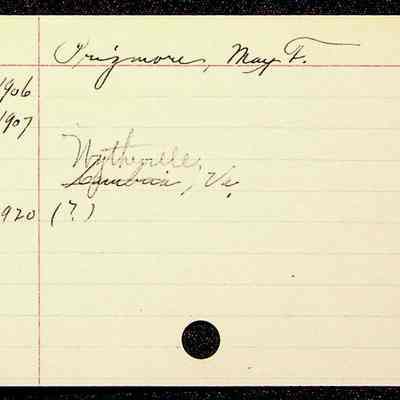 Prigmore, May F.
1906
1907
Wytheville,
Cambria, Va.
1920 (?)